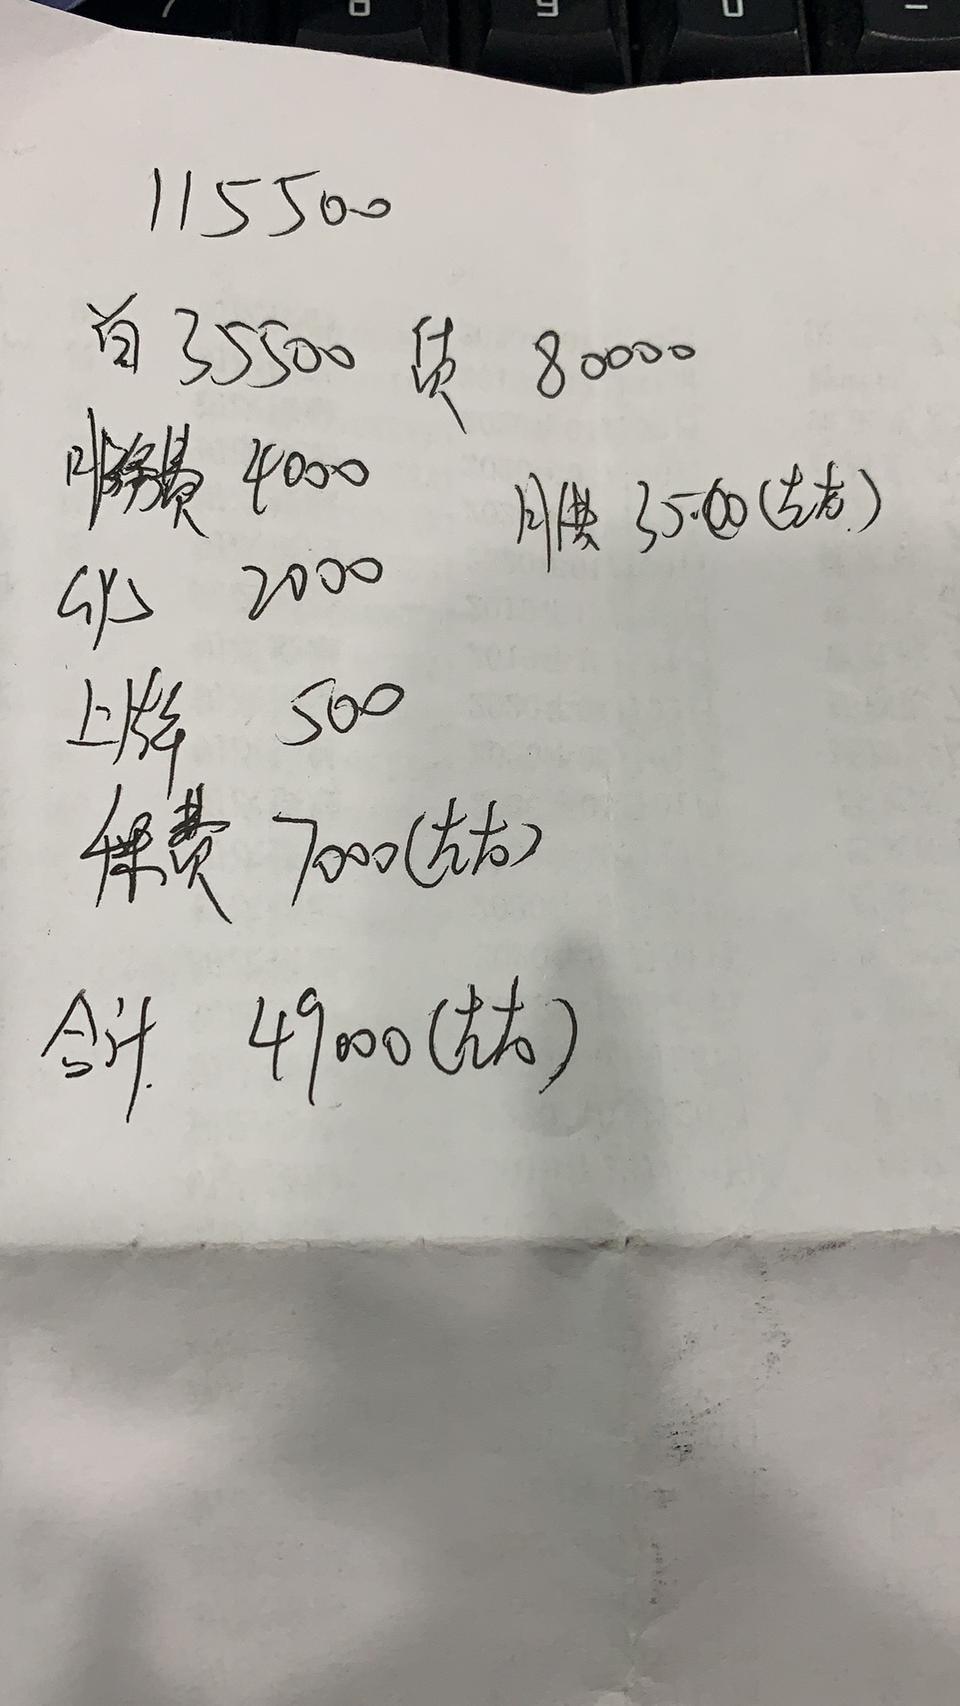 115500
首 35500 贷 80000
服务费 4000
月供 3500(左右)
GPS 2000
上牌 500
保费 7000(左右)
合计 49000(左右)